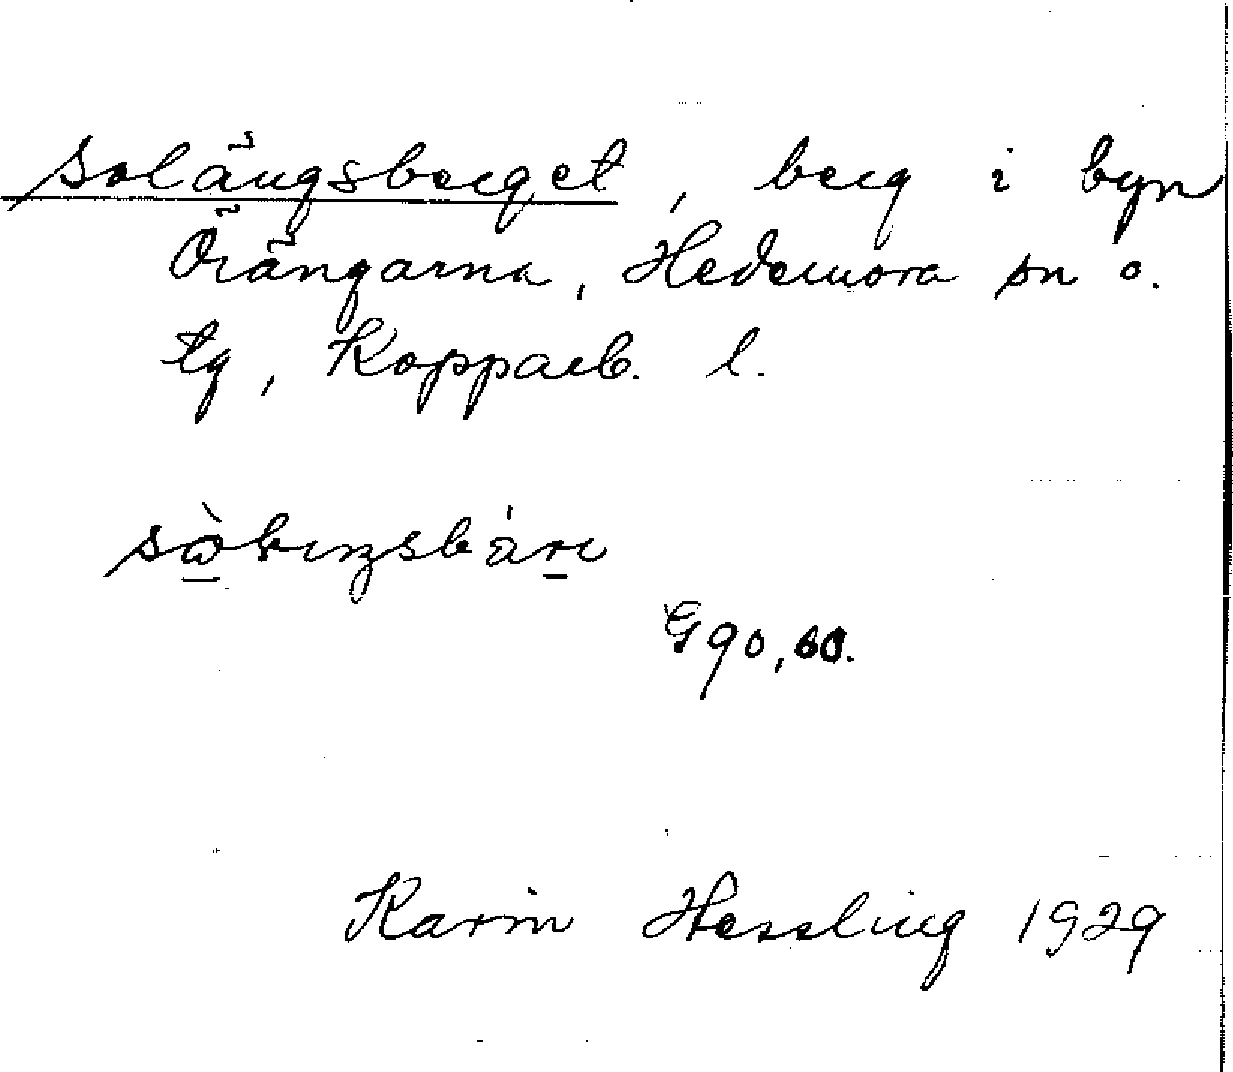 Solängsberget, berg i byn
Örängarna, Hedemora sn o.
tg, Kopparb. l.
G 90, 60.
Karin Hessling 1929